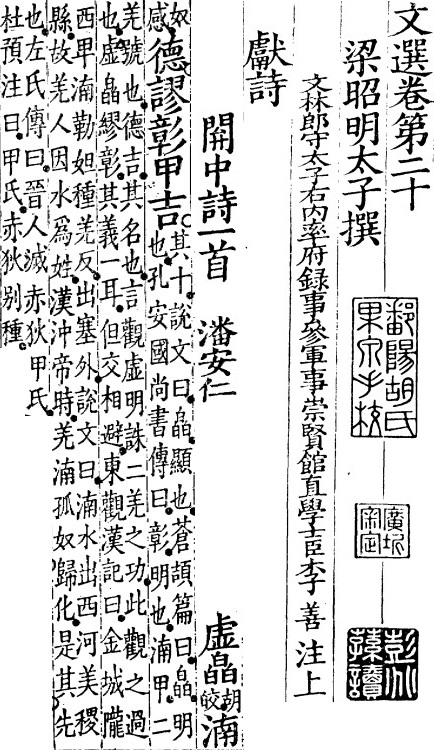 文選卷第二十
梁昭明太子撰
鄱陽胡氏
果泉手校
廣圻
審定
彭兆
蓀讀
文林郎守太子右内率府録事叅軍事崇賢館直學士臣李善注上
獻詩
關中詩一首 潘安仁
虛皛胡皎湳
奴感德謬彰甲吉其十說文曰皛顯也蒼頡篇曰皛明
也孔安國尚書傳曰彰明也湳甲二
羌號也德吉其名也言觀虛明誅二羌之功此觀之過
也虛皛繆彰其義一耳但交相避東觀漢記曰金城隴
西卑湳勒姐種羌反出塞外說文曰湳水出西河美稷
縣故羌人因水爲姓漢沖帝時羌湳孤奴歸化是其先
也左氏傳曰晉人滅赤狄甲氏
杜預注曰甲氏赤狄别種